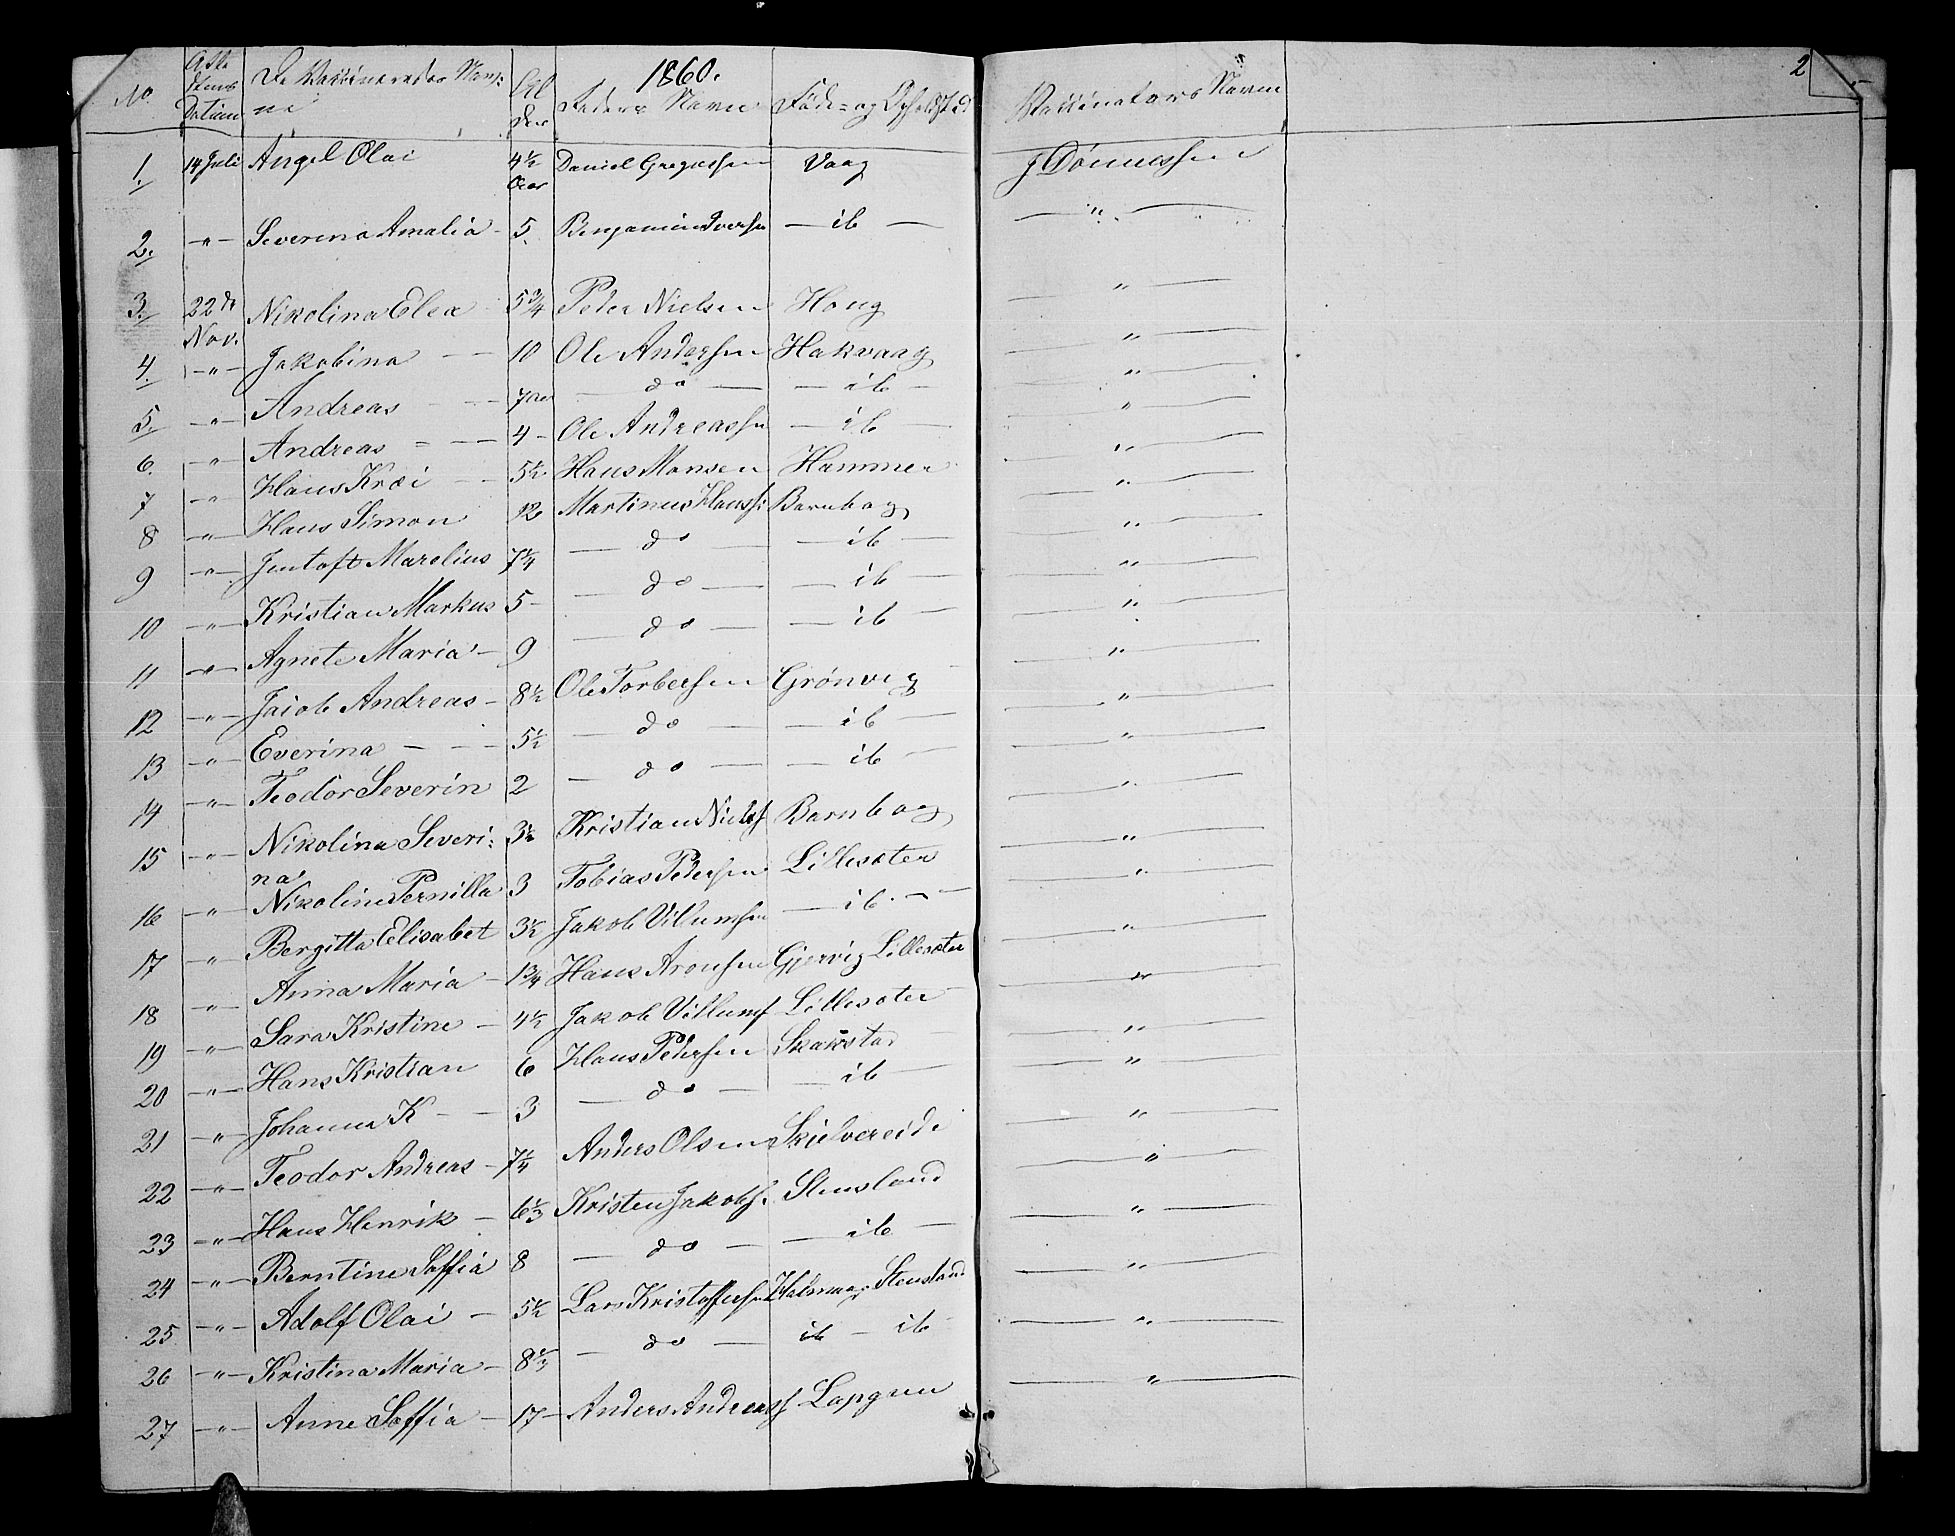 1860.
2
No. Datum De Vaccineredes Navne Alder Faders Navn Føde- og Opholdsted Vaccinators Navn
1. 14 Juli Angel Olai 4½ Aar Daniel Vaag J Dønnessen
2. -"- Severina Amalia - 5. Benjamin Iversen - ib - - " -
3. 22de Nov. Nikolina Elea 5¾ Peter Nielsen Houg - " -
4. -"- Jakobina - - 10 Ole Andersen Hakvaag - " -
5. -"- Andreas - - 7 - do - - ib - - " -
6. -"- Andreas - - 4 - Ole Andreassen - ib - - " -
7 -"- Hans Kræi - - 5½ Hans Monsen Hammer - " -
8 -"- Hans Simon 12 Martinus Hanss: Barnbog - " -
9 -"- Jentoft Marelius 7¼ - do - - ib - - " -
10 -"- Kristian Markus 5 - - do - - ib - - " -
11 -"- Agnete Maria - 9 - do - - ib - - " -
12 -"- Jacob Andreas - 8½ Ole Torbersen Grønvig - " -
13 -"- Everina - - - 5½ - do - - ib - - " -
14 -"- Teodor Severin 2 - do - - ib - - " -
15 -"- Nikolina Severi: 3½ Kristian Niels Barnbog - " -
na
16 -"- Nikoline Pernilla 3 Tobias Pedersen Lillesæter - " -
17 -"- Bergitta Elisabet 3½ Jakob Villumsen - ib. - - " -
18 -"- Anna Maria - 1¾ Hans Aronsen Gjervig Lillesæter - " -
19 -"- Sara Kristine - 4½ Jakob Villums Lillesæter - " -
20 -"- Hans Kristian 6 Hans Pedersen Skarstad - " -
21 -"- Johanna K - - 3 - do - - ib - - " -
22 -"- Teodor Andreas - 7¼ Anders Olsen Skjelvereide - " -
23 -"- Hans Henrik - 6⅓ Kristen Jakobs. Stensland - " -
24 -"- Berntine Soffia 8 - do - - ib - - " -
25 -"- Adolf Olai - 5½ Lars Kristoffersen Stensland - " -
26 -"- Kristina Maria - 8⅓ - do - ib - ib - - " -
27 -"- Anne Soffia - 17 - Anders Andreass Lapgren